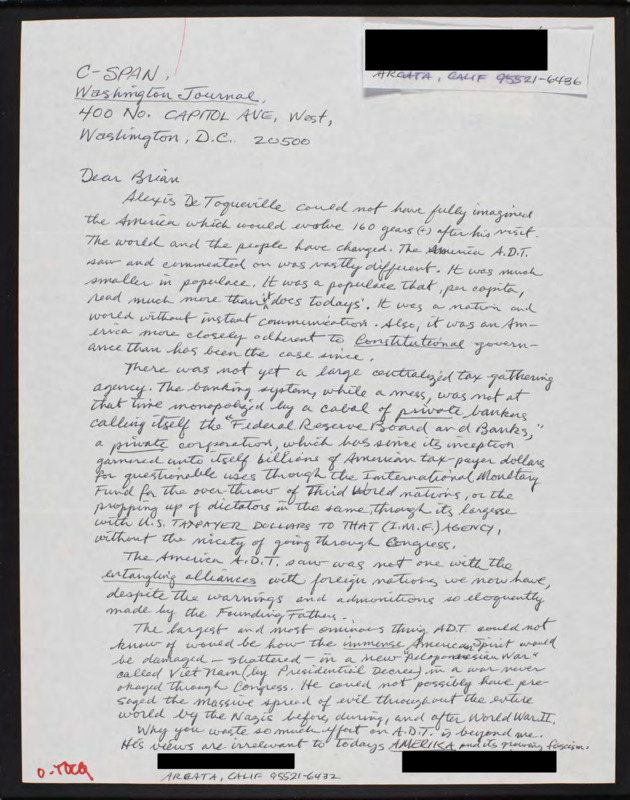 ARCATA, CALIF 95521-6436
C-SPAN,
Washington Journal,
400 No. CAPITOL AVE, West,
Washington, D.C. 20500
Dear Brian
Alexis De Toqueville could not have fully imagined
the America which would evolve 160 years (+) after his visit.
The world and the people have changed. The America A.D.T.
saw and commented on was vastly different. It was much
smaller in populace. It was a populace that, per capita,
read much more than does todays'. It was a nation and
world without instant communication. Also, it was an Am-
erica more closely adherent to Constitutional govern-
ance than has been the case since.
There was not yet a large centralized tax-gathering
agency. The banking system, while a mess, was not at
that time monopolized by a cabal of private bankers
calling itself the "Federal Reserve Board and Banks,"
a private corporation, which has since its inception
garnered unto itself billions of American tax-payer dollars
for questionable uses through the International Monetary
Fund for the over-throw of Third World nations, or the
propping up of dictators in the same, through its largesse
with U.S. TAXPAYER DOLLARS TO THAT (I.M.F.) AGENCY,
without the nicety of going through Congress.
The America A.D.T. saw was not one with the
entangling alliances with foreign nations we now have,
despite the warnings and admonitions so eloquently
made by the Founding Fathers.
The largest and most ominous thing A.D.T. could not
know of would be how the immense American Spirit would
be damaged - shattered - in a new "Peloponnesian War"
called Viet Nam (by Presidential Decree) in a war never
okayed through Congress. He could not possibly have pre-
saged the massive spread of evil throughout the entire
world by the Nazis before, during, and after World War II.
Why you waste so much effort on A.D.T. is beyond me.
His views are irrelevant to todays AMERIKA and its growing fascism.
ARCATA, CALIF 95521-6432